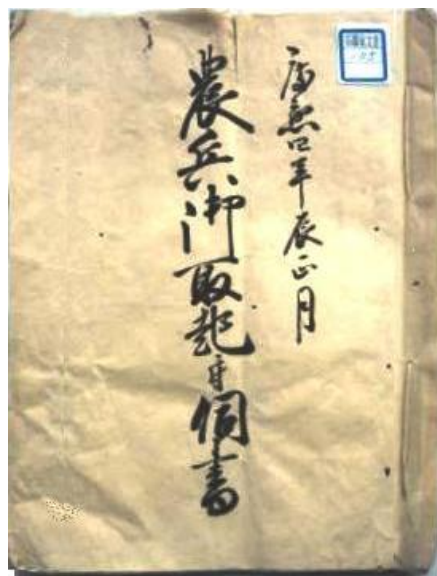 慶應四年辰正月
農兵御取起伺書